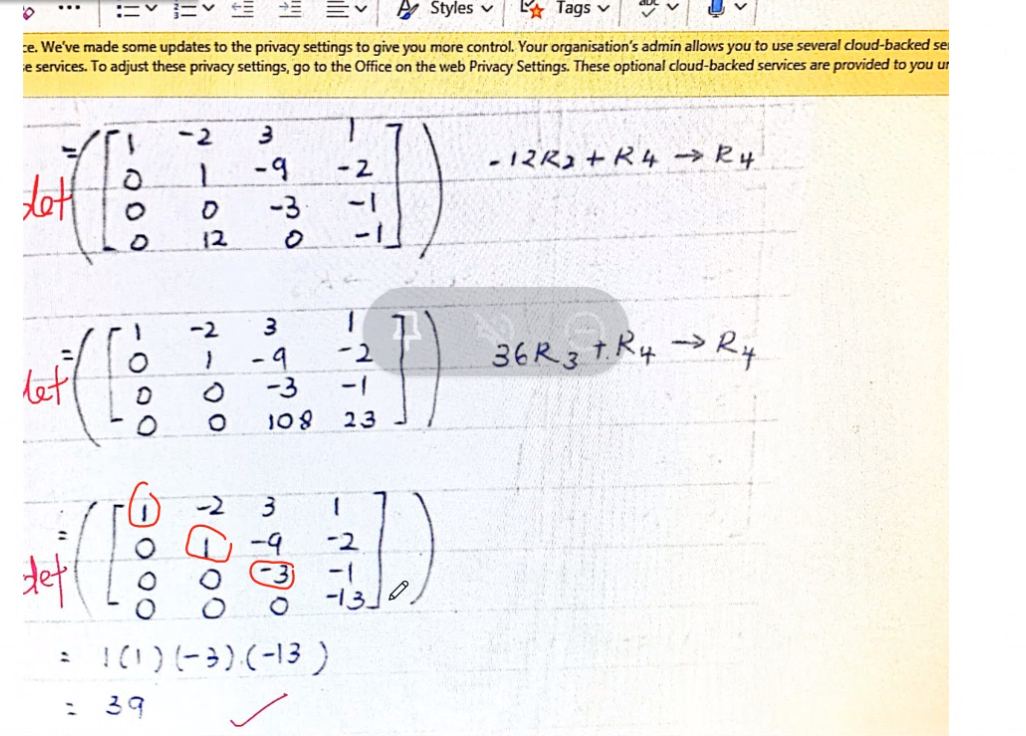 Styles Tags abc
ce. We've made some updates to the privacy settings to give you more control. Your organisation's admin allows you to use several cloud-backed se
e services. To adjust these privacy settings, go to the Office on the web Privacy Settings. These optional cloud-backed services are provided to you
= det ( [ 1 -2 3 1
0 1 -9 -2
0 0 -3 -1
0 12 0 -1 ] ) -12R2 + R4 → R4
= det ( [ 1 -2 3 1
0 1 -9 -2
0 0 -3 -1
0 0 108 23 ] ) 36R3 + R4 → R4
= det ( [ 1 -2 3 1
0 1 -9 -2
0 0 -3 -1
0 0 0 -13 ] )
= 1(1)(-3).(-13)
= 39